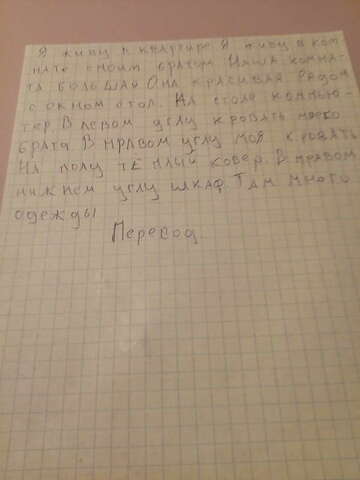 Я живу в квартире. Я живу в ком-
нате с моим братом Наша комна-
та большая Она красивая Рядом
с окном стол. На столе компью-
тер. В левом углу кровать моего
брата. В правом углу моя кровать
На полу тёплый ковер. В правом
нижнем углу шкаф. Там много
одежды
Перевод